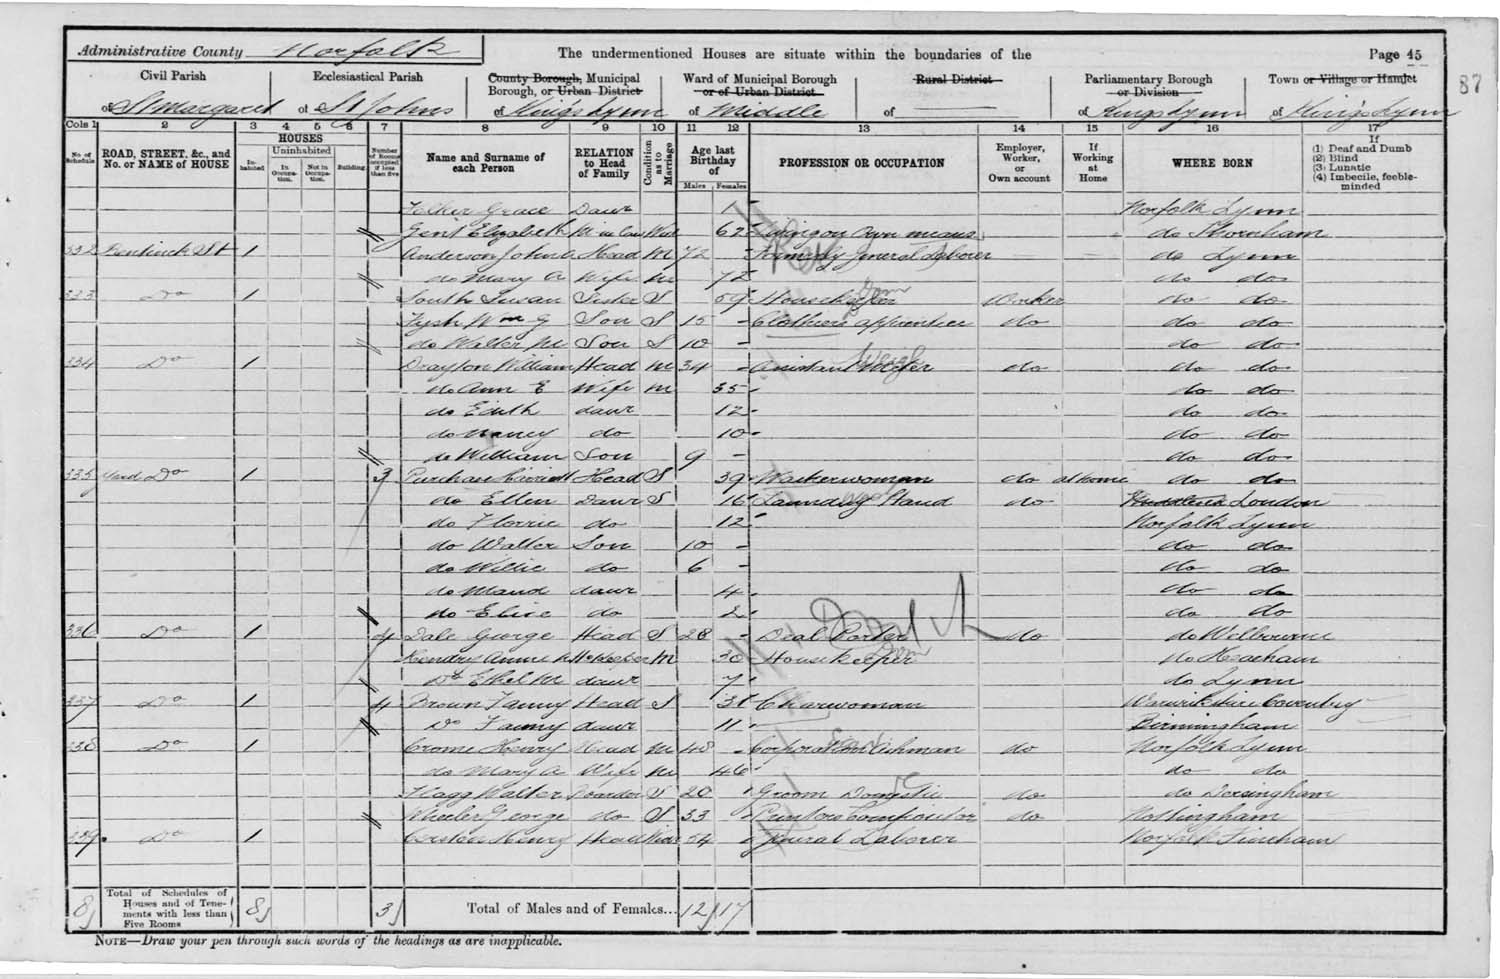 Administrative County Norfolk
The undermentioned Houses are situate within the boundaries of the
Page 45
87
Civil Parish
of St Margaret
Ecclesiastical Parish
of St Johns
County Borough, Municipal Borough, or Urban District
of King's Lynn
Ward of Municipal Borough or of Urban District
of Middle
Rural District
of
Parliamentary Borough or Division
of Kings Lynn
Town or Village or Hamlet
of King's Lynn
Cols 1 2 3 4 5 6 7 8 9 10 11 12 13 14 15 16 17
No. of Schedule
ROAD, STREET, &c., and No. or NAME of HOUSE
HOUSES
Inhabited
Uninhabited
In Occupation.
Not in Occupation.
Building
Number of Rooms occupied if less than five
Name and Surname of each Person
RELATION to Head of Family
Condition as to Marriage
Age last Birthday of
Males Females
PROFESSION OR OCCUPATION
Employer, Worker, or Own account
If Working at Home
WHERE BORN
If (1) Deaf and Dumb (2) Blind (3) Lunatic (4) Imbecile, feeble-minded
Grace Daur 1 Norfolk Lynn
Gent Elizabeth M in law Wid 62 Living on Own means do Thornham
332 Bentinck St 1 Anderson John Head M 72 Formerly General Laborer do Lynn
do Mary A Wife M 72 do do
333 Do 1 South Susan Sister S 59 Housekeeper Dom Worker do do
Fysh Wm G Son S 15 - Clothiers apprentice do do do
do Walter M Son S 10 - do do
334 Do 1 Drayton William Head M 34 - Assistant Weigh do do do
do Ann E Wife M 35 do do
do Edith daur 12 do do
do Nancy do 10 do do
do William Son 9 - do do
335 Yard Do 1 3 Purchase Harriett Head S 39 Washerwoman do at home do do
do Ellen Daur S 16 Laundry Hand do London
do Florrie do 12 Norfolk Lynn
do Walter Son 10 - do do
do Willie do 6 - do do
do Maud daur 4 do do
do Elsie do 2 do do
336 Do 1 4 Dale George Head S 28 - Deal Porter do do Welbourne
Hendry Annie Hkeeper M 30 Housekeeper Dom do Heacham
Do Ethel M daur 7 do Lynn
337 Do 1 4 Brown Fanny Head S 31 Charwoman Warwickshire Coventry
Do Fanny daur 11 Birmingham
338 Do 1 Crome Henry Head M 48 - Corporation Ashman do Norfolk Lynn
do Mary A Wife M 46 do do
Flagg Walter Boarder S 20 Groom Domestic do do Dersingham
Wheeler George do S 33 Printers Compositor do Nottingham
339 Do 1 Henry Head Widr 54 General Laborer Norfolk Fincham
8 Total of Schedules of Houses and of Tenements with less than Five Rooms 8 3 Total of Males and of Females... 12 17
NOTE—Draw your pen through such words of the headings as are inapplicable.